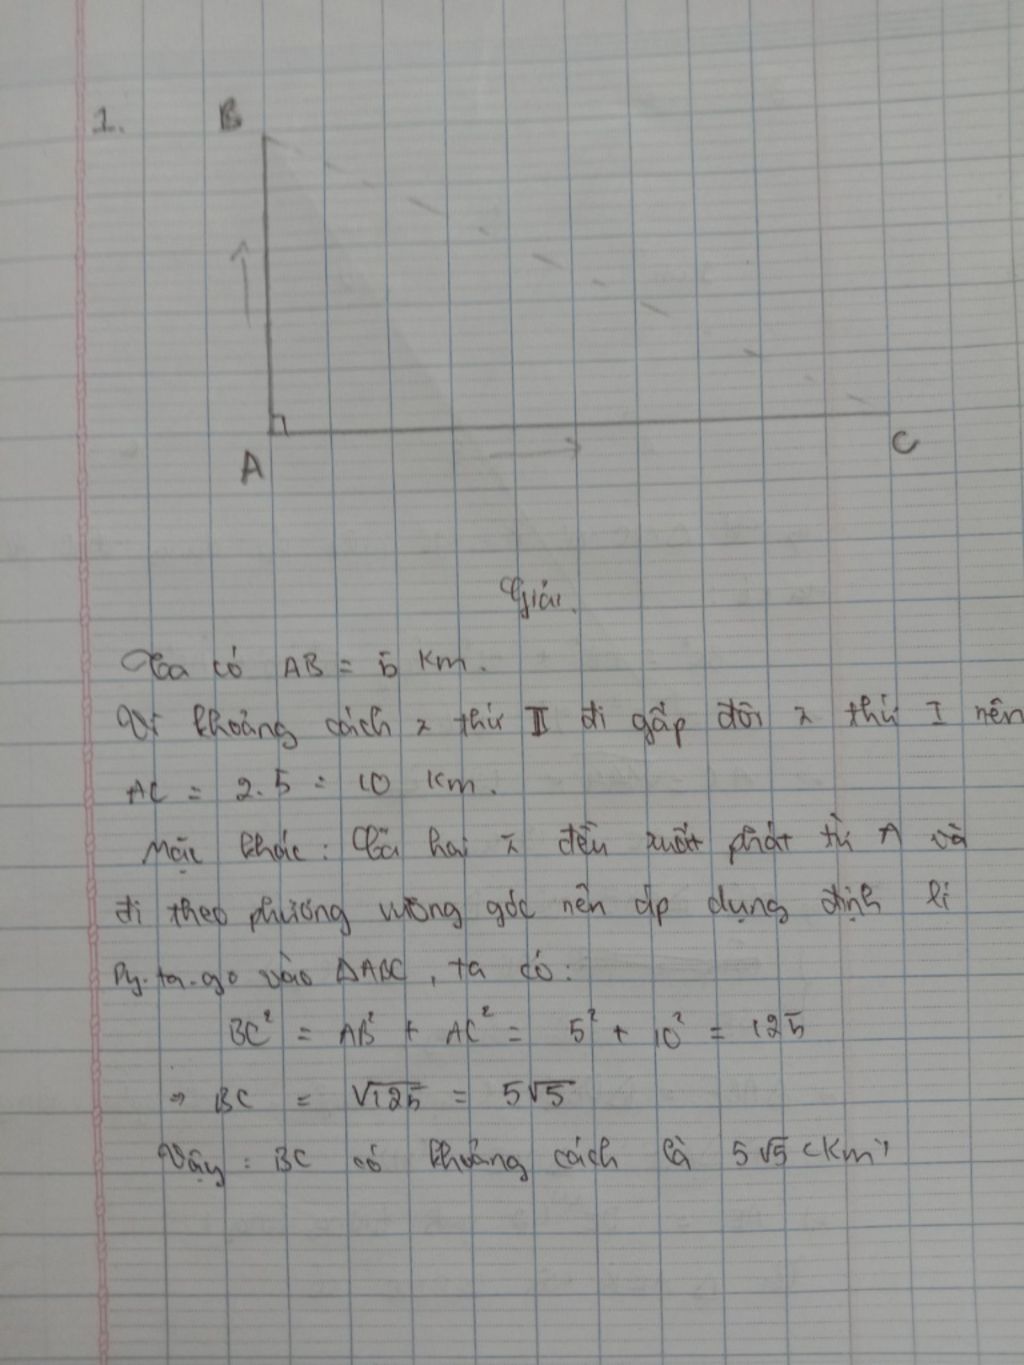 1. B
A
C
Giải.
Ta có AB = 5 km.
Vì khoảng cách x thứ II đi gấp đôi x thứ I nên
AC = 2.5 = 10 km.
Mặc khác: Cả hai x đều xuất phát từ A và
đi theo phương vuông góc nên áp dụng định lí
Py-ta-go vào ΔABC, ta có:
BC² = AB² + AC² = 5² + 10² = 125
⇒ BC = √125 = 5√5
Vậy: BC có khoảng cách là 5√5 (km)